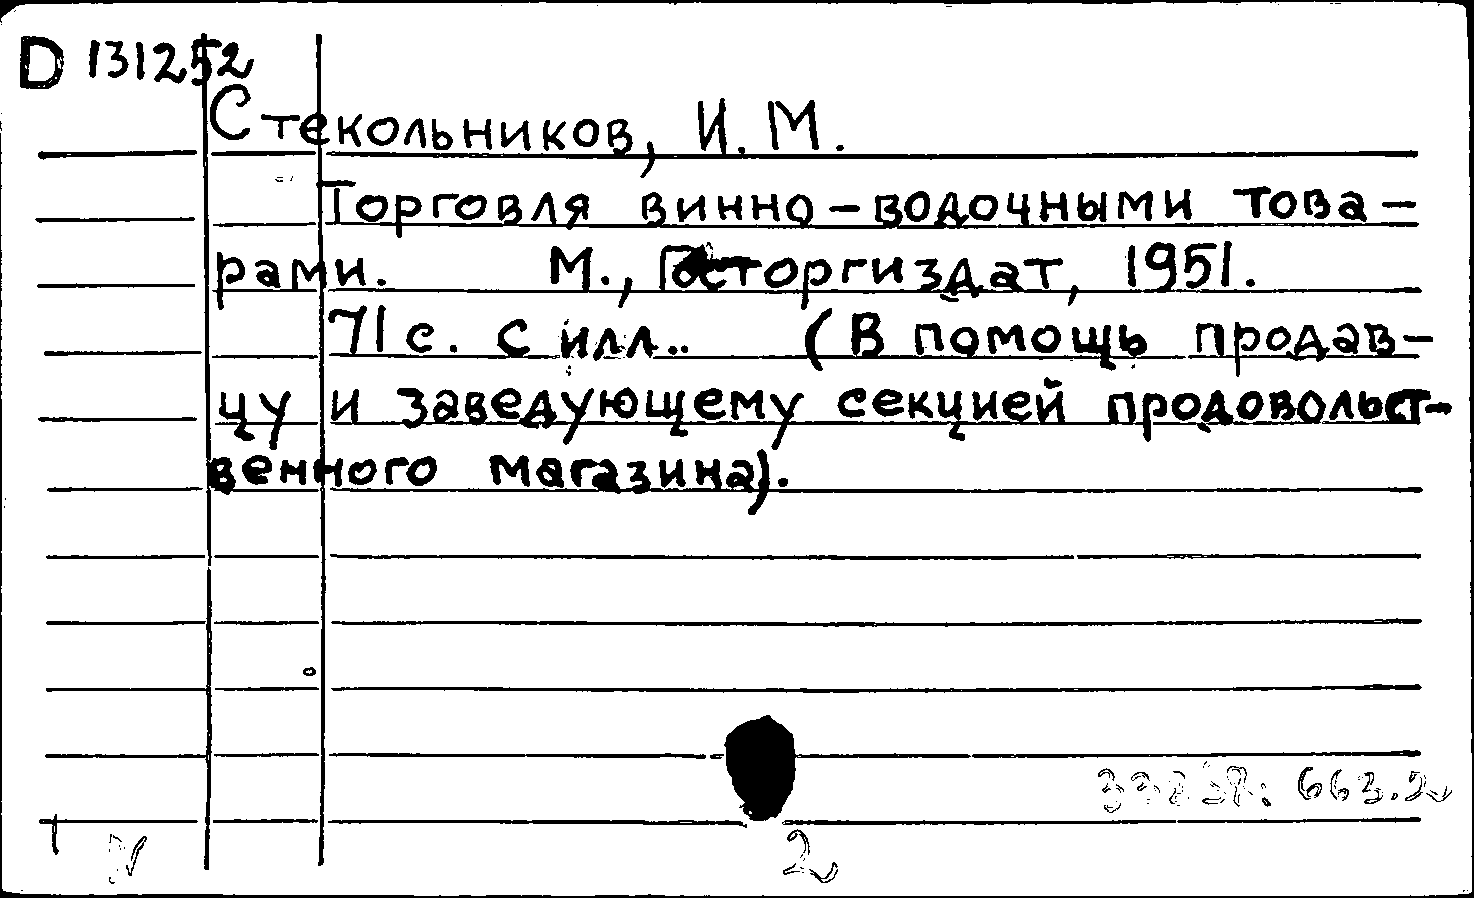 D 131252
Стекольников, И. М.
Торговля винно-водочными това-
рами. М., Госторгиздат, 1951.
71 с. С илл.. (В помощь продав-
цу и заведующему секцией продовольст-
венного магазина).
663.5
2